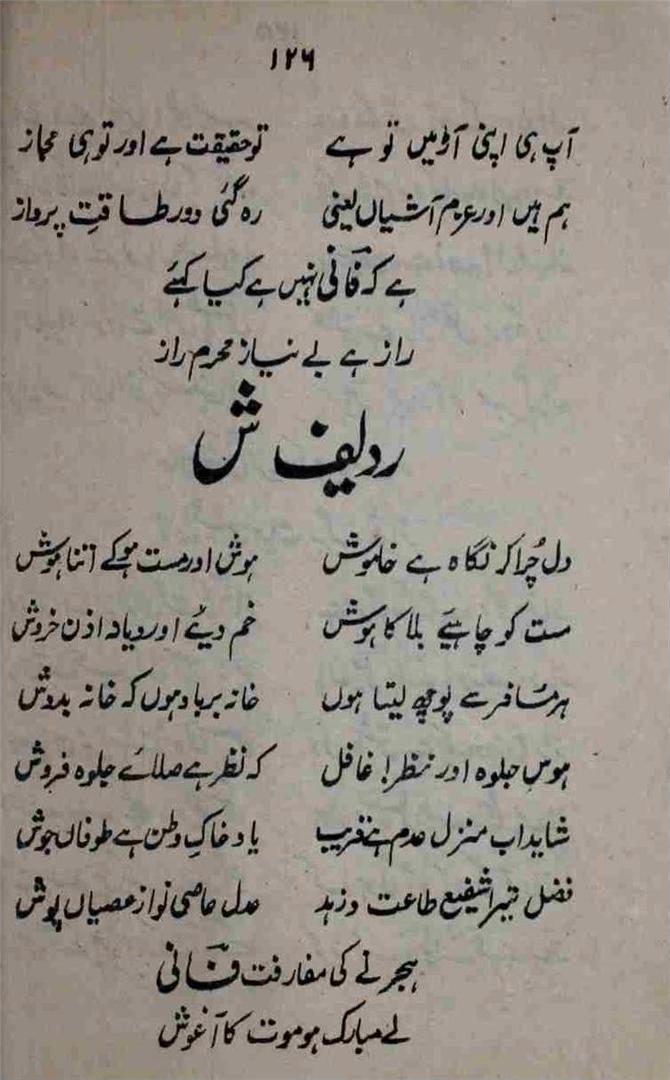 ۱۲۶
آپ ہی اپنی آڑ میں تو ہے تو حقیقت ہے اور تو ہی مجاز
ہم ہیں اور عزم آشیاں یعنی رہ گئی دور طاقتِ پرواز
ہے کہ فانی نہیں ہے کیا کہئے
راز ہے بے نیاز محرم راز
ردیف ش
دل چُرا کر نگاہ ہے خاموش ہوش اور مست ہو کے اتنا ہوش
مست کو چاہیے بلا کا ہوش خم دیئے اور دیا نہ اذن خروش
ہر مسافر سے پوچھ لیتا ہوں خانہ برباد ہوں کہ خانہ بدوش
ہوسِ جلوہ اور نظر! غافل کہ نظر ہے صلائے جلوہ فروش
شاید اب منزل عدم ہے قریب یاد خاکِ وطن ہے طوفاں جوش
فضل تیرا شفیع طاعت و زہد عدل عاصی نواز عصیاں پوش
ہجر نے کی مفارقت فانی
لے مبارک ہو موت کا آغوش